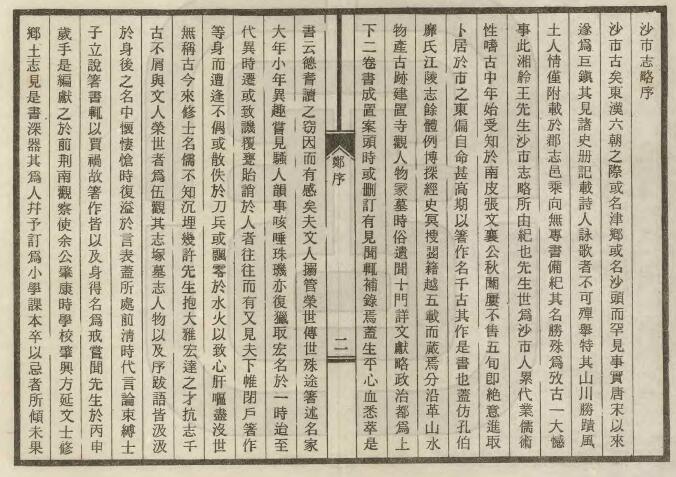 沙市志略序
沙市古矣東漢六朝之際或名津鄉或名沙頭而罕見事實唐宋以來
遂爲巨鎮其見諸史册記載詩人詠歌者不可殫舉特其山川勝蹟風
土人情僅附載於郡志邑乘向無專書備紀其名勝殊爲攷古一大憾
事此湘舲王先生沙市志略所由紀也先生世爲沙市人累代業儒術
性嗜古中年始受知於南皮張文襄公秋闈屢不售五旬即絶意進取
卜居於市之東偏自命甚高期以著作名千古其作是書也蓋仿孔伯
靡氏江陵志餘體例博探經史冥搜羣籍越五載而蕆焉分沿革山水
物產古跡建置寺觀人物冢墓時俗遺聞十門詳文獻略政治都爲上
下二卷書成置案頭時或删訂有見聞輒補錄焉蓋生平心血悉萃是
鄭序
二
書云德耆讀之窃因而有感矣夫文人搦管榮世傳世殊途箸述名家
大年小年異趣嘗見騷人韻事咳唾珠璣亦復獵取宏名於一時迨至
代異時遷或致譏覆甕貽誚於人者往往而有又見夫下帷閉戶箸作
等身而遭逢不偶或散佚於刀兵或飄零於水火以致心肝嘔盡沒世
無稱古今來修士名儒不知沉埋幾許先生抱大雅宏達之才抗志千
古不屑與文人榮世者爲伍觀其志塚墓志人物以及序跋語皆汲汲
於身後之名中懷悽愴時復溢於言表蓋所處前淸時代言論束縛士
子立說箸書輒以賈禍故箸作皆以及身得名爲戒嘗聞先生於丙申
歲手是編獻之於前荆南觀察使余公肇康時學校肇興方延文士修
鄉土志見是書深器其爲人幷予訂爲小學課本卒以忌者所傾未果